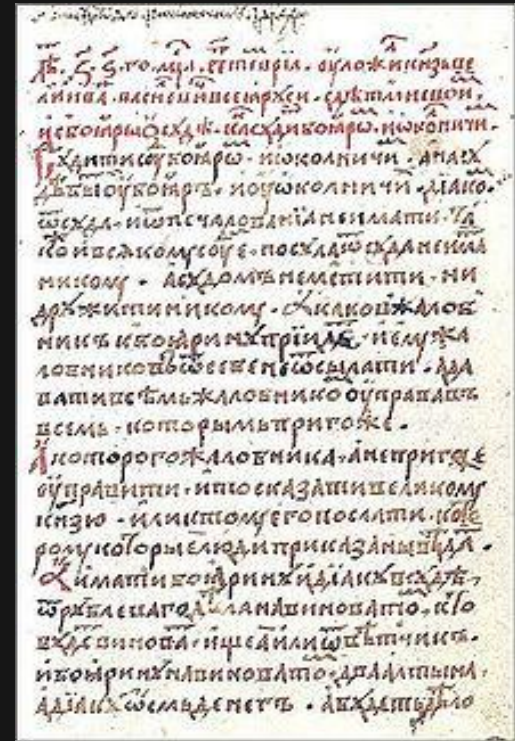 лѣ. ҂з҃ ѕ҃ го. мцⷭ҇а септеврїа. оуложи кнѧзь ве
ликї ива василеви всеѧ рꙋси. с дѣтми свои.
и с боѧры ѡ сꙋдѣ. ка сꙋди боѧрѡ. и ѡколничи.
Сꙋдити сꙋ боѧрѡ. и ѡколничи. а на сꙋ
дѣ быти оу боѧръ. и оу ѡколничи дїако
ѿ сꙋда. и ѿ печалованїа не имати. та
ко и всѧкомꙋ сꙋе. посꙋла ѿ сꙋда не има
никомꙋ. а сꙋдомъ не мстити. ни
дрꙋжити никомꙋ. А каков жалоб
никъ к боѧринꙋ прїидѣ. и емꙋ жа
лобниковъ ѿ себе не ѿсылати. а да
вати всѣмь жалобнико оуправа въ
всемь. которымь пригоже.
А которого жалобника. а непригоже
оуправити. и то сказати великомꙋ
кнѧзю. или к томꙋ его послати. кото
ромꙋ которые люди приказаны вѣда.
А имати боѧринꙋ и дїакꙋ в сꙋдѣ.
ѿ рꙋблеваго дѣла на виновато. кто
бꙋде винова. ищеа или ѿвѣтчикъ.
и боѧринꙋ на виновато. два алтына.
а дїакꙋ ѡсмь денегъ. а бꙋдеть дѣло